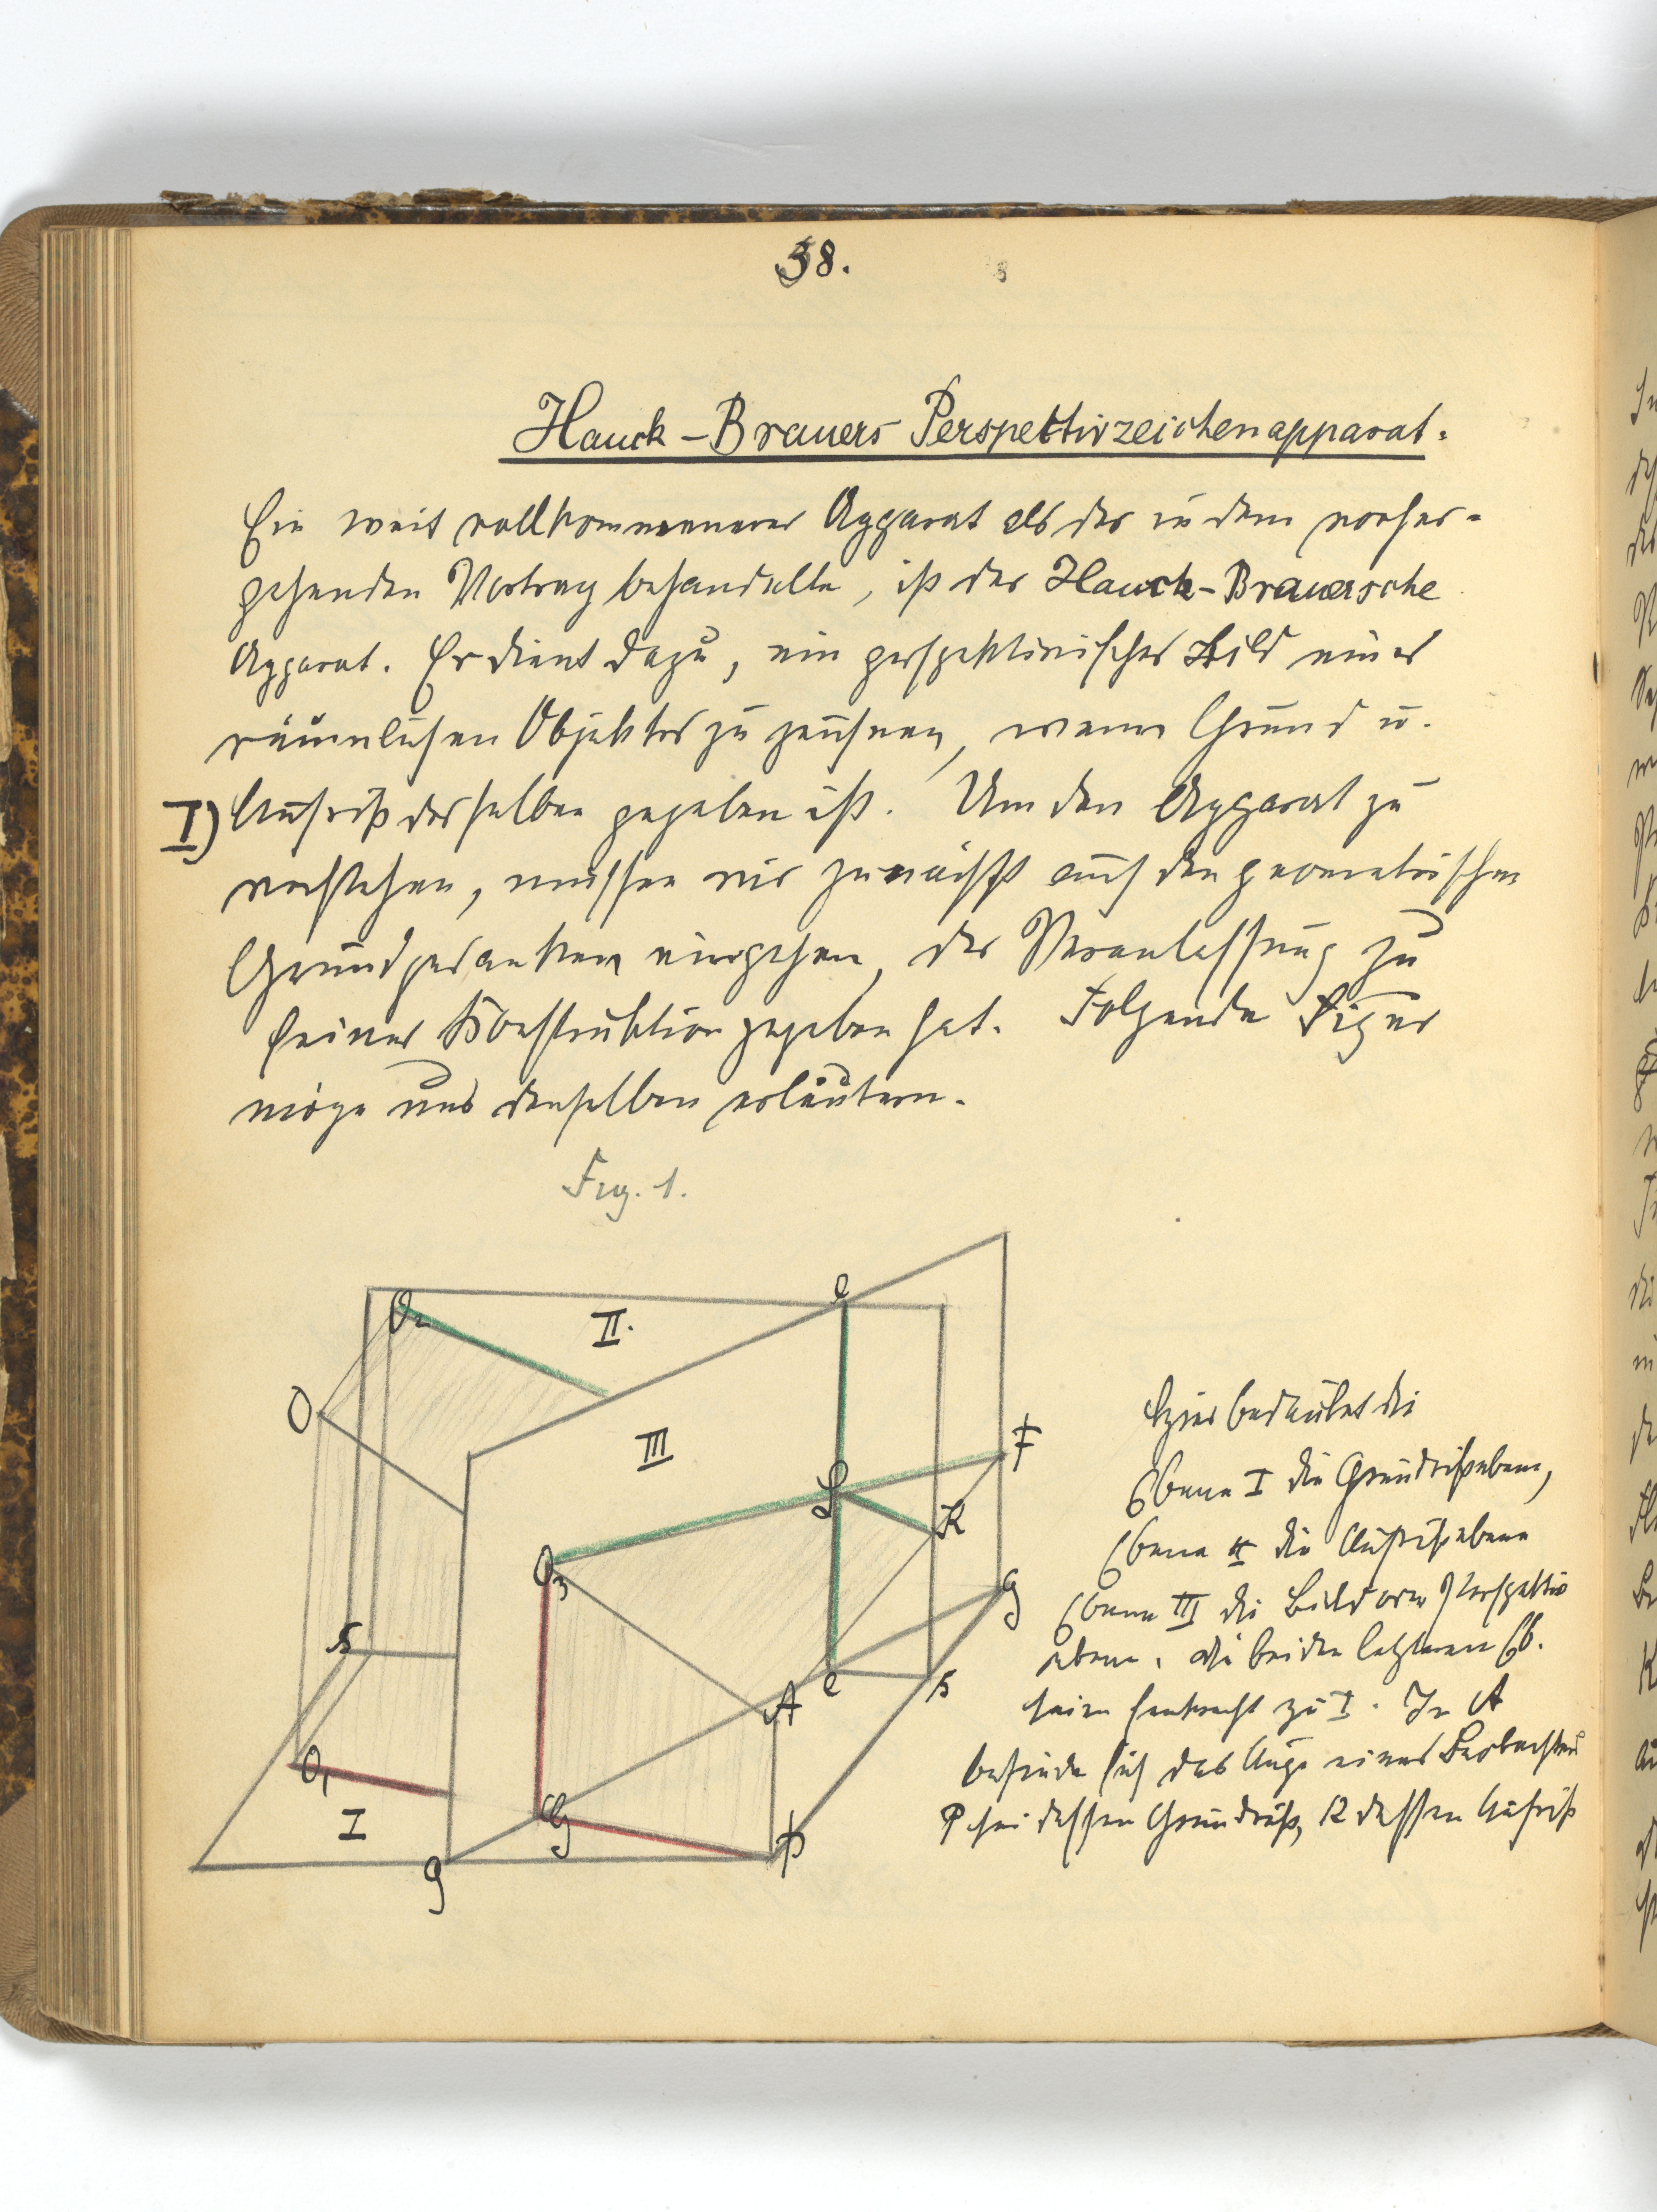 38.
Hauck-Brauers Perspektivzeichenapparat.
Ein weit vollkommenerer Apparat als der in dem vorher-
gehenden Vortrag behandelte, ist der Hauck-Brauersche
Apparat. Er dient dazu, ein perspektivisches Bild eines
räumlichen Objektes zu zeichnen, wenn Grund u.
I) Aufriß desselben gegeben ist. Um den Apparat zu
verstehen, müssen wir zunächst auf den geometrischen
Grundgedanken eingehen, der Veranlassung zu
seiner Konstruktion gegeben hat. Folgende Figur
möge uns denselben erläutern.
Fig. 1.
O2
II.
e
O
III
F
K
O3
g
s
A
e
s
O1
I
G
p
g
Hier bedeutet die
Ebene I die Grundrißebene,
Ebene II die Aufrißebene
Ebene III die Bild oder Perspektiv
ebene. die beiden letzteren Eb.
seien senkrecht zu I. In A
befinde sich das Auge eines Beobachters
P sei dessen Grundriß, K dessen Aufriß